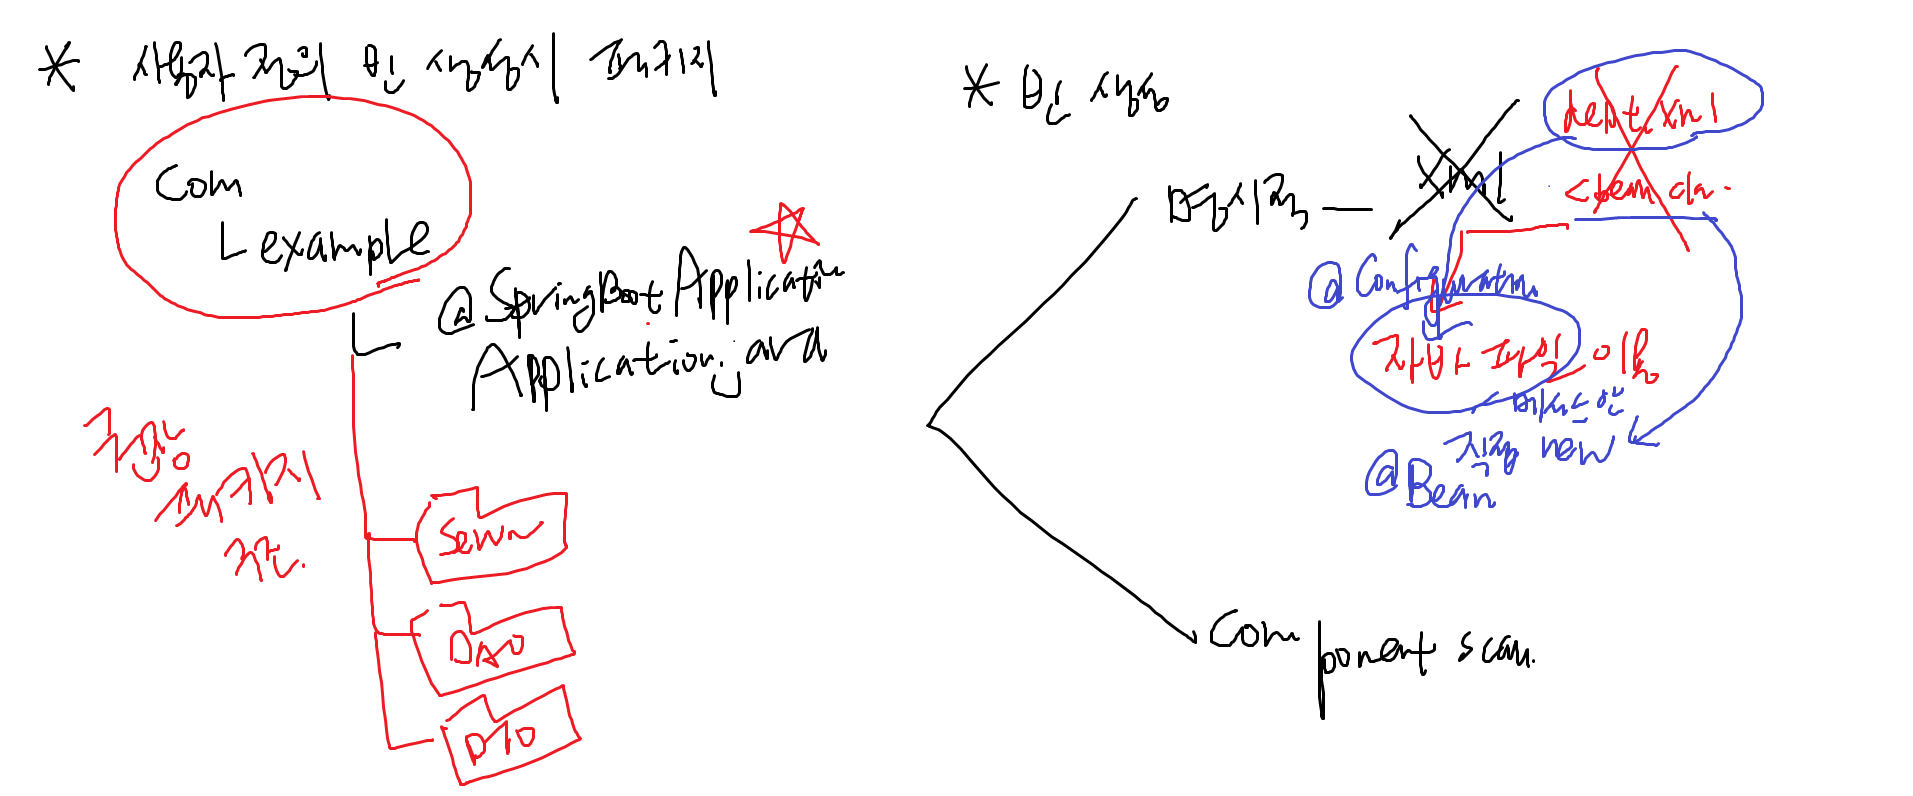 * 사용자 정의 빈 생성시 패키지
com
ㄴ example
ㄴ @SpringBoot Application
Application.java
권장
패키지
구조.
DAO
DTO
* 빈 생성
명시적 — xml
dept.xml
<bean cla.
@Configuration
자바 파일 이용
메서드안
직접 new
@Bean
Component scan.